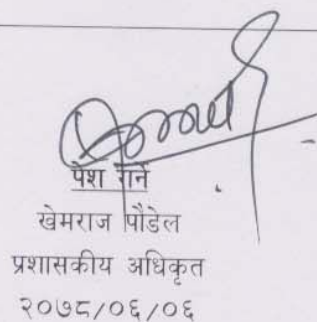 पेश गर्ने
खेमराज पौडेल
प्रशासकीय अधिकृत
२०७८/०६/०६